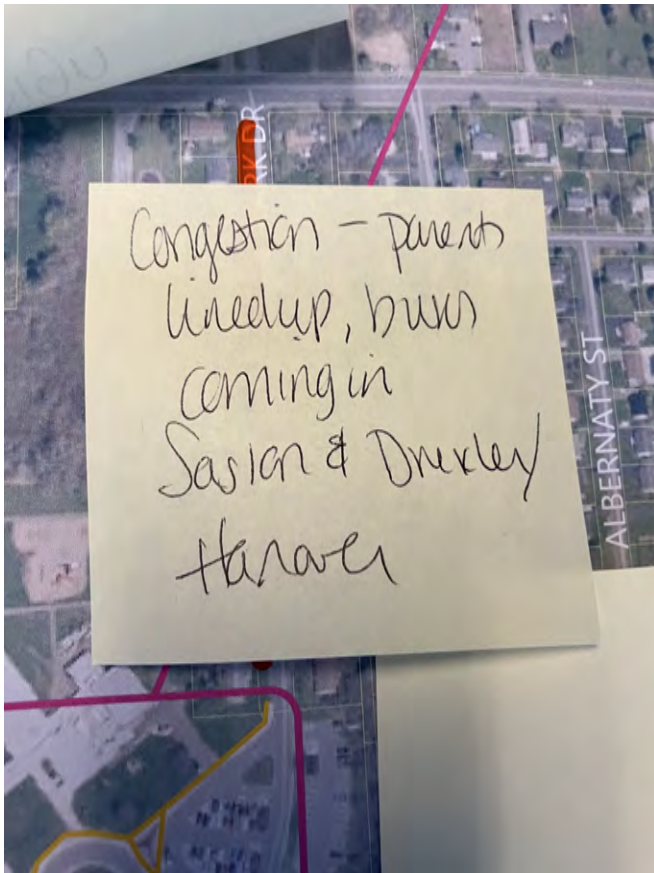 RK DR
Congestion – parents
lined up, buses
coming in
& Drexley
Hanover
ALBERNATY ST